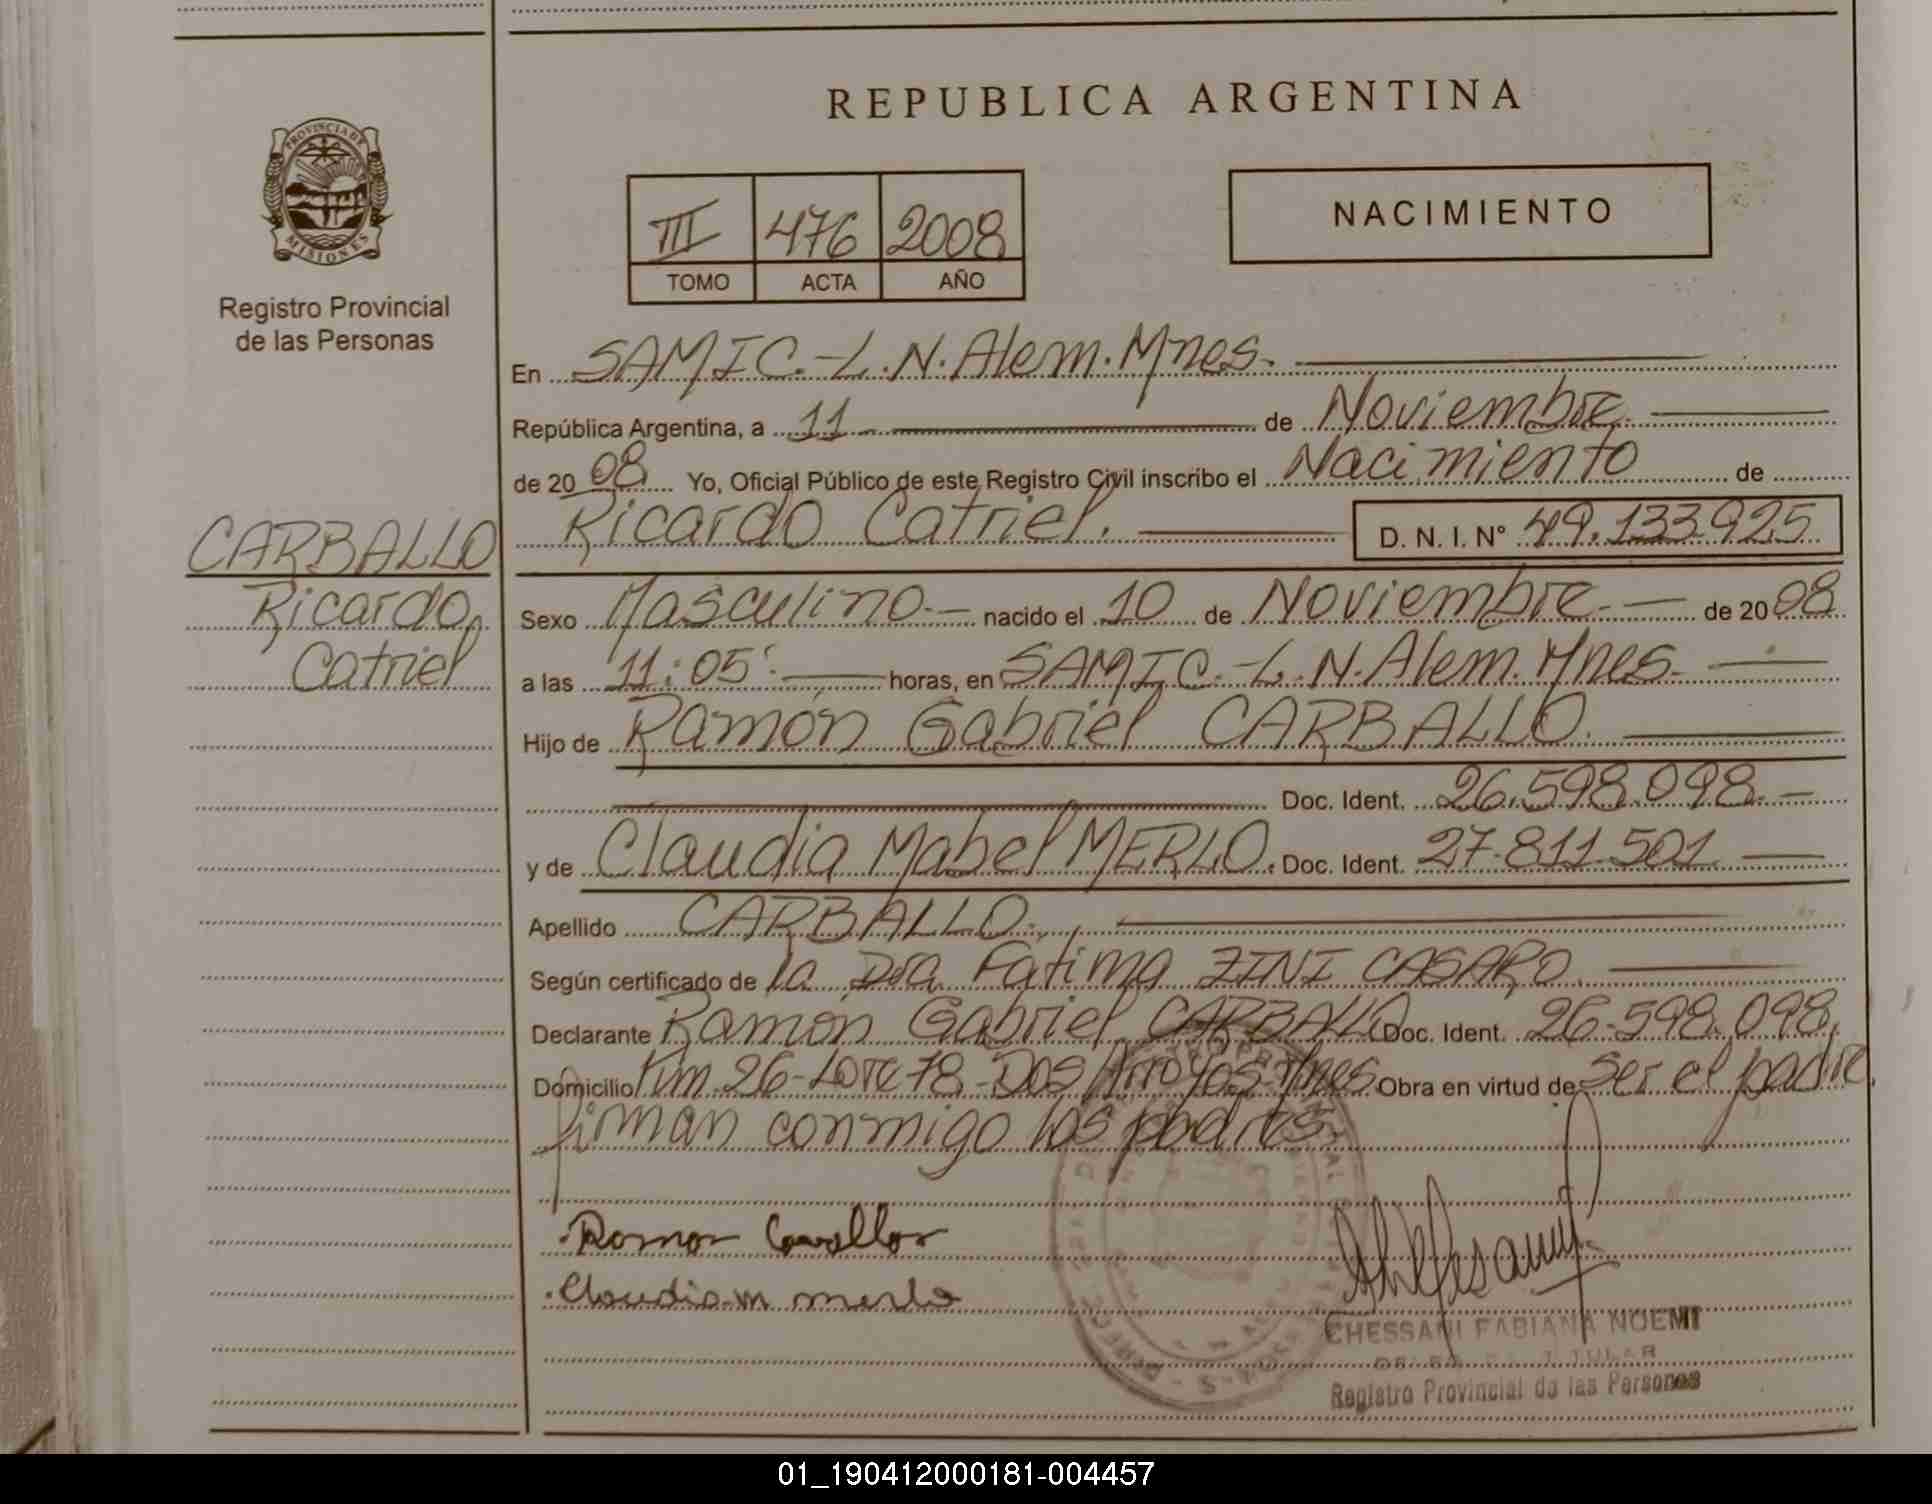 REPUBLICA ARGENTINA
PROVINCIA DE
MISIONES
Registro Provincial
de las Personas
III 476 2008
TOMO ACTA AÑO
NACIMIENTO
En SAMIC.-L.N.Alem.Mnes.
República Argentina, a 11 de Noviembre.
de 2008 Yo, Oficial Público de este Registro Civil inscribo el Nacimiento de
Ricardo Catriel. D. N. I. N° 49.133.925
CARBALLO
Ricardo
Catriel
Sexo Masculino.- nacido el 10 de Noviembre.- de 2008
a las 11:05' horas, en SAMIC.-L.N.Alem.Mnes.
Hijo de Ramón Gabriel CARBALLO.
Doc. Ident. 26.598.098.-
y de Claudia Mabel MERLO. Doc. Ident. 27.811.501
Apellido CARBALLO.
Según certificado de la Dra. Fatima ZINI CASARO
Declarante Ramon Gabriel CARBALLO Doc. Ident. 26.598.098.
Domicilio Km.26-Lote 78-Dos Arroyos-Mnes Obra en virtud de ser el padre
firman conmigo los padres
Ramon Carvallo
Claudia m merlo
CHESSANI FABIANA NOEMI
Registro Provincial de las Personas
01_190412000181-004457